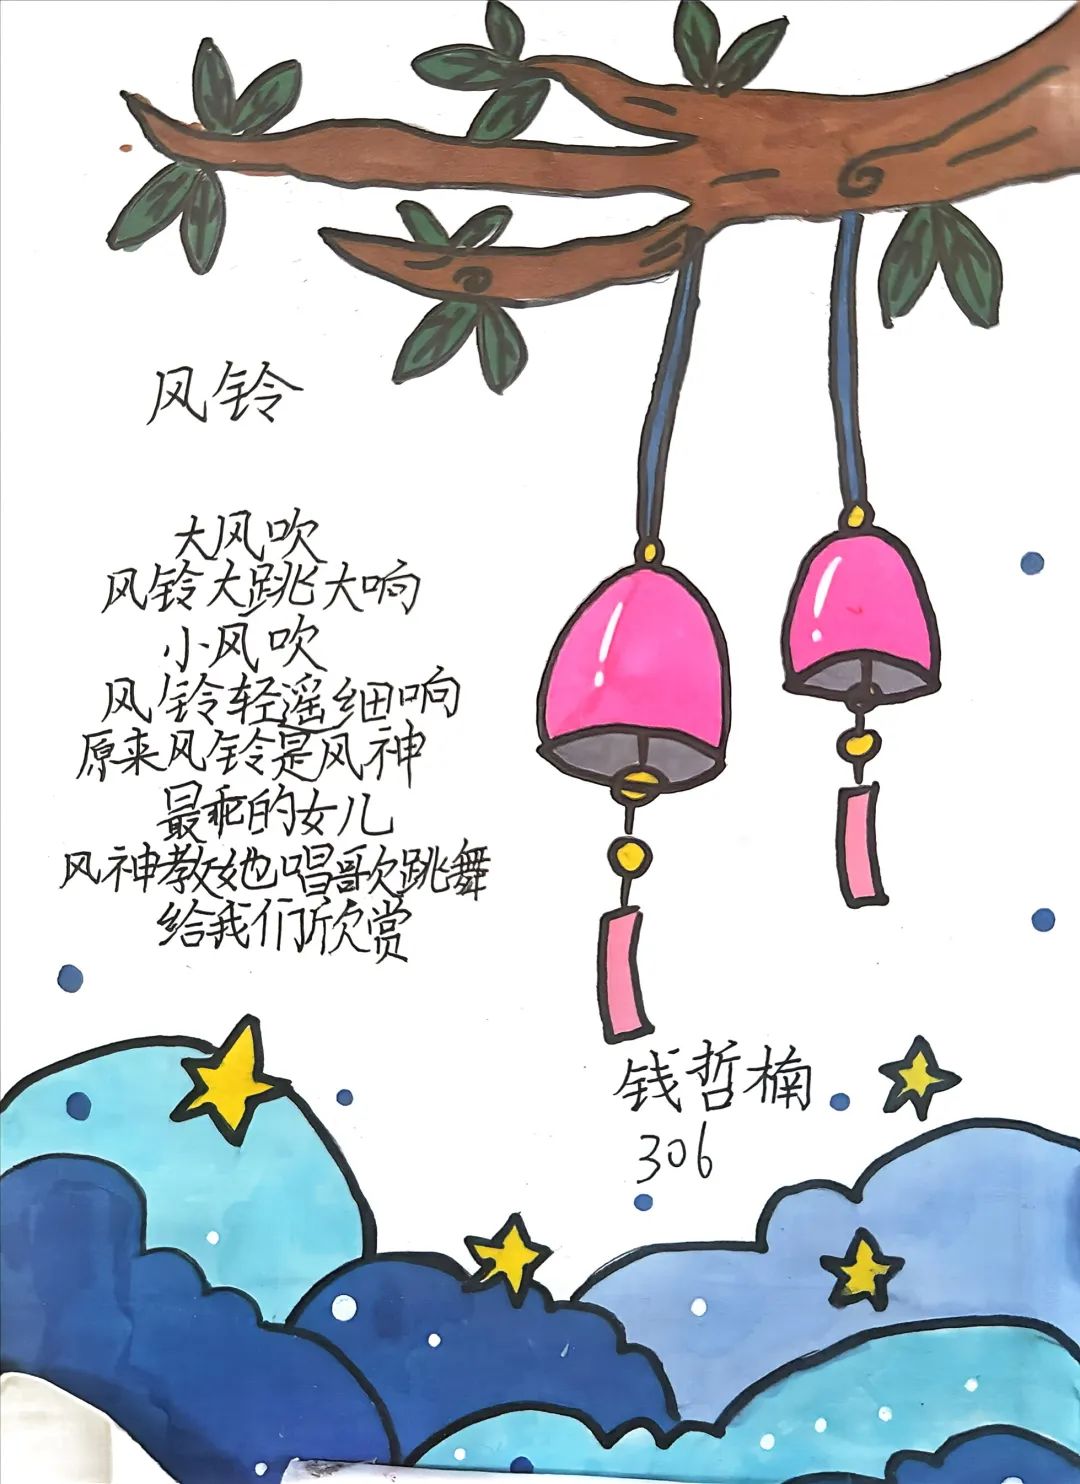 风铃
大风吹
风铃大跳大响
小风吹
风铃轻遥细响
原来风铃是风神
最乖的女儿
风神教她唱歌跳舞
给我们欣赏
钱哲楠
306